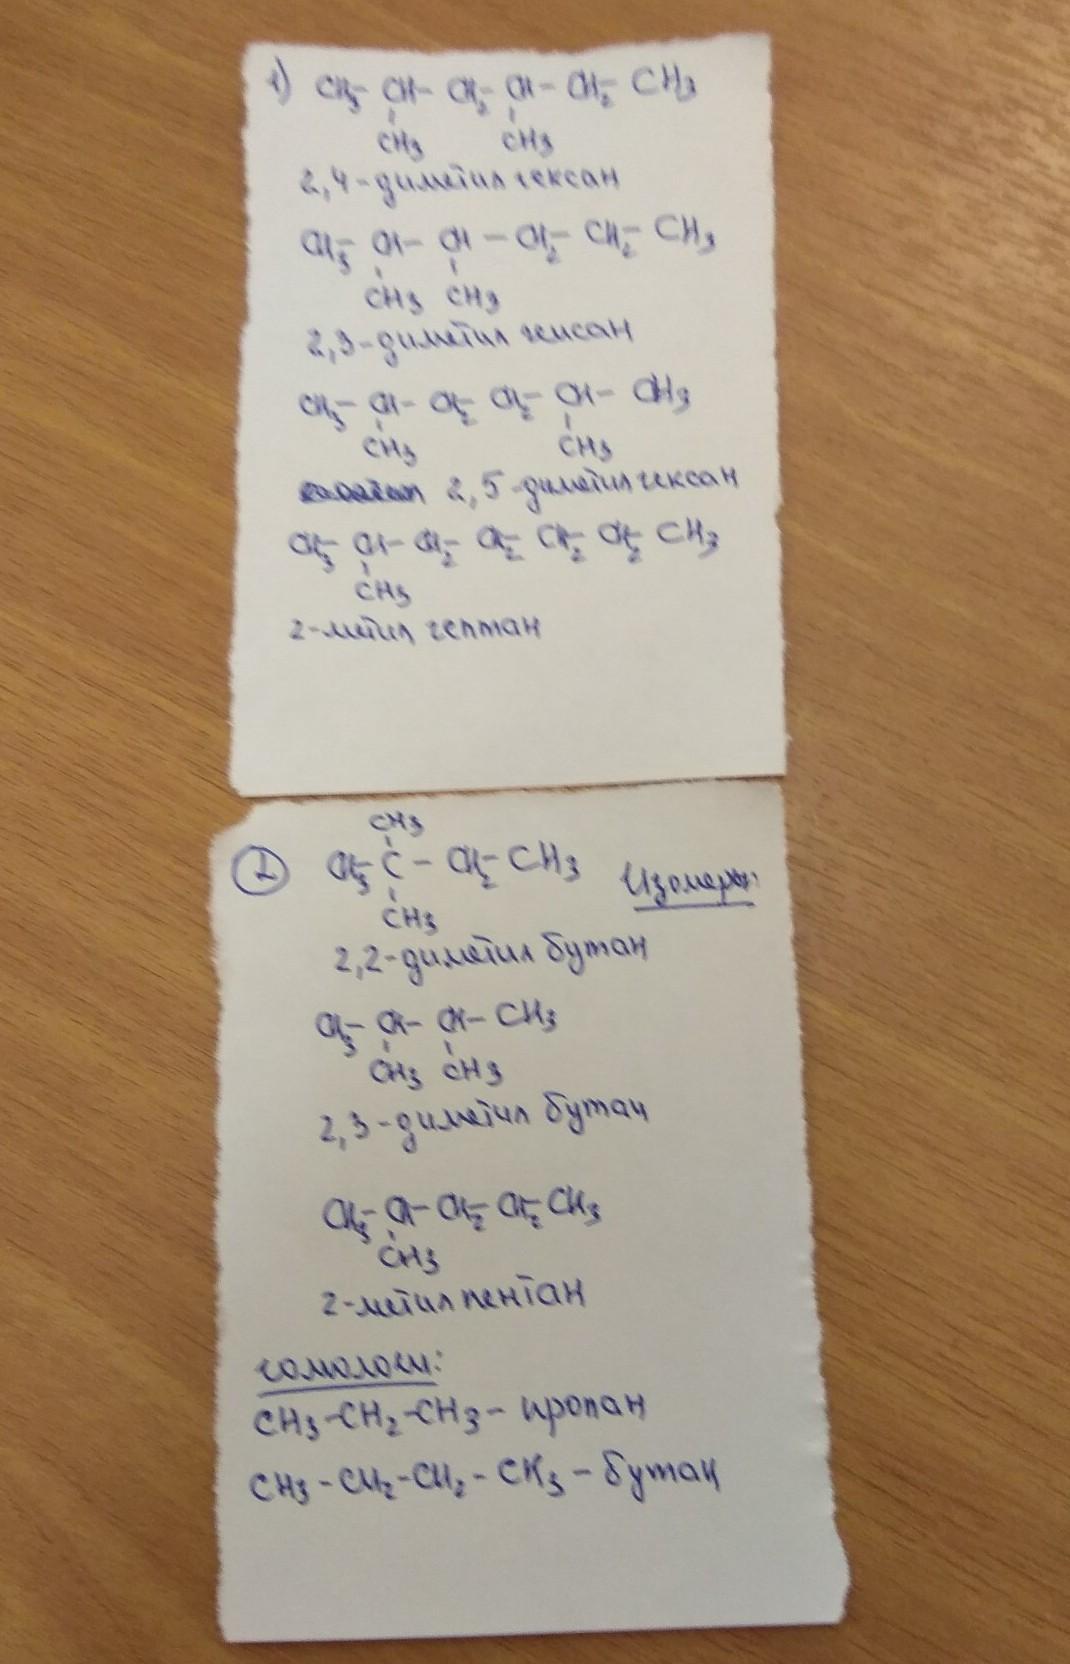 1) CH3- CH- CH2- CH- CH2- CH3
CH3 CH3
2,4-диметил гексан
CH3- CH- CH - CH2- CH2- CH3
CH3 CH3
2,3-диметил гексан
CH3- CH- CH2- CH2- CH- CH3
CH3 CH3
2,5-диметил гексан
CH3- CH- CH2- CH2- CH2- CH2- CH3
CH3
2-метил гептан
CH3
2 CH3- C - CH2- CH3 Изомеры:
CH3
2,2-диметил бутан
CH3- CH- CH- CH3
CH3 CH3
2,3-диметил бутан
CH3- CH- CH2- CH2- CH3
CH3
2-метил пентан
гомологи:
CH3-CH2-CH3- пропан
CH3-CH2-CH2- CH3 - бутан